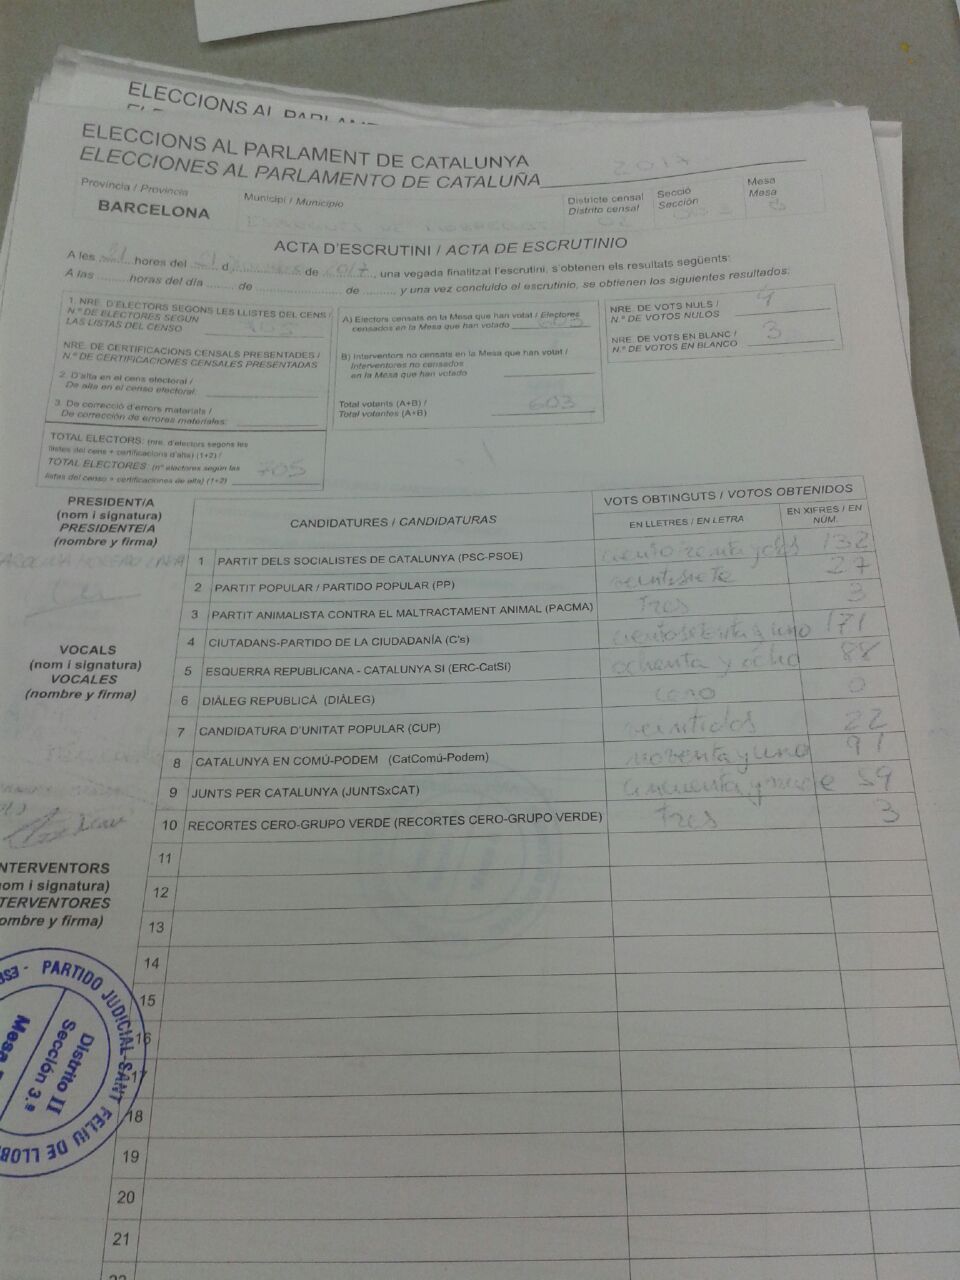 ELECCIONS AL PARLAM
ELECCIONS AL PARLAMENT DE CATALUNYA
ELECCIONES AL PARLAMENTO DE CATALUÑA 2017
Província / Provincia
BARCELONA
Municipi / Municipio
Districte censal
Distrito censal
02
Secció
Sección
Mesa
Mesa
B
ACTA D'ESCRUTINI / ACTA DE ESCRUTINIO
A les 21 hores del 21 d de 2017, una vegada finalitzat l'escrutini, s'obtenen els resultats següents:
A las ......... horas del día ......... de ......... de ........., y una vez concluido el escrutinio, se obtienen los siguientes resultados:
1. NRE. D'ELECTORS SEGONS LES LLISTES DEL CENS /
N.º DE ELECTORES SEGÚN
LAS LISTAS DEL CENSO 705
NRE. DE CERTIFICACIONS CENSALS PRESENTADES /
N.º DE CERTIFICACIONES CENSALES PRESENTADAS
2. D'alta en el cens electoral /
De alta en el censo electoral:
3. De correcció d'errors materials /
De corrección de errores materiales:
TOTAL ELECTORS: (nre. d'electors segons les
llistes del cens + certificacions d'alta) (1+2) /
TOTAL ELECTORES: (nº electores según las
listas del censo + certificaciones de alta) (1+2) 705
A) Electors censats en la Mesa que han votat / Electores
censados en la Mesa que han votado 603
B) Interventors no censats en la Mesa que han votat /
Interventores no censados
en la Mesa que han votado
Total votants (A+B) /
Total votantes (A+B) 603
NRE. DE VOTS NULS /
N.º DE VOTOS NULOS
NRE. DE VOTS EN BLANC /
N.º DE VOTOS EN BLANCO 3
PRESIDENT/A
(nom i signatura)
PRESIDENTE/A
(nombre y firma)
VOCALS
(nom i signatura)
VOCALES
(nombre y firma)
NTERVENTORS
om i signatura)
TERVENTORES
ombre y firma)
CANDIDATURES / CANDIDATURAS
VOTS OBTINGUTS / VOTOS OBTENIDOS
EN LLETRES / EN LETRA
EN XIFRES / EN NÚM.
1 PARTIT DELS SOCIALISTES DE CATALUNYA (PSC-PSOE) 132
2 PARTIT POPULAR / PARTIDO POPULAR (PP) veintisiete 27
3 PARTIT ANIMALISTA CONTRA EL MALTRACTAMENT ANIMAL (PACMA) Tres 3
4 CIUTADANS-PARTIDO DE LA CIUDADANÍA (C's) ciento setenta y uno 171
5 ESQUERRA REPUBLICANA - CATALUNYA SI (ERC-CatSí) ochenta y ocho 88
6 DIÀLEG REPUBLICÀ (DIÀLEG) cero 0
7 CANDIDATURA D'UNITAT POPULAR (CUP) veintidos 22
8 CATALUNYA EN COMÚ-PODEM (CatComú-Podem) noventa y uno 91
9 JUNTS PER CATALUNYA (JUNTSxCAT) cincuenta y nueve 59
10 RECORTES CERO-GRUPO VERDE (RECORTES CERO-GRUPO VERDE) Tres 3
11
12
13
14
15
16
17
18
19
20
21
22
PARTIDO JUDICIAL-SANT FELIU DE LLOB
Distrito II
Sección 3.ª
Mesa